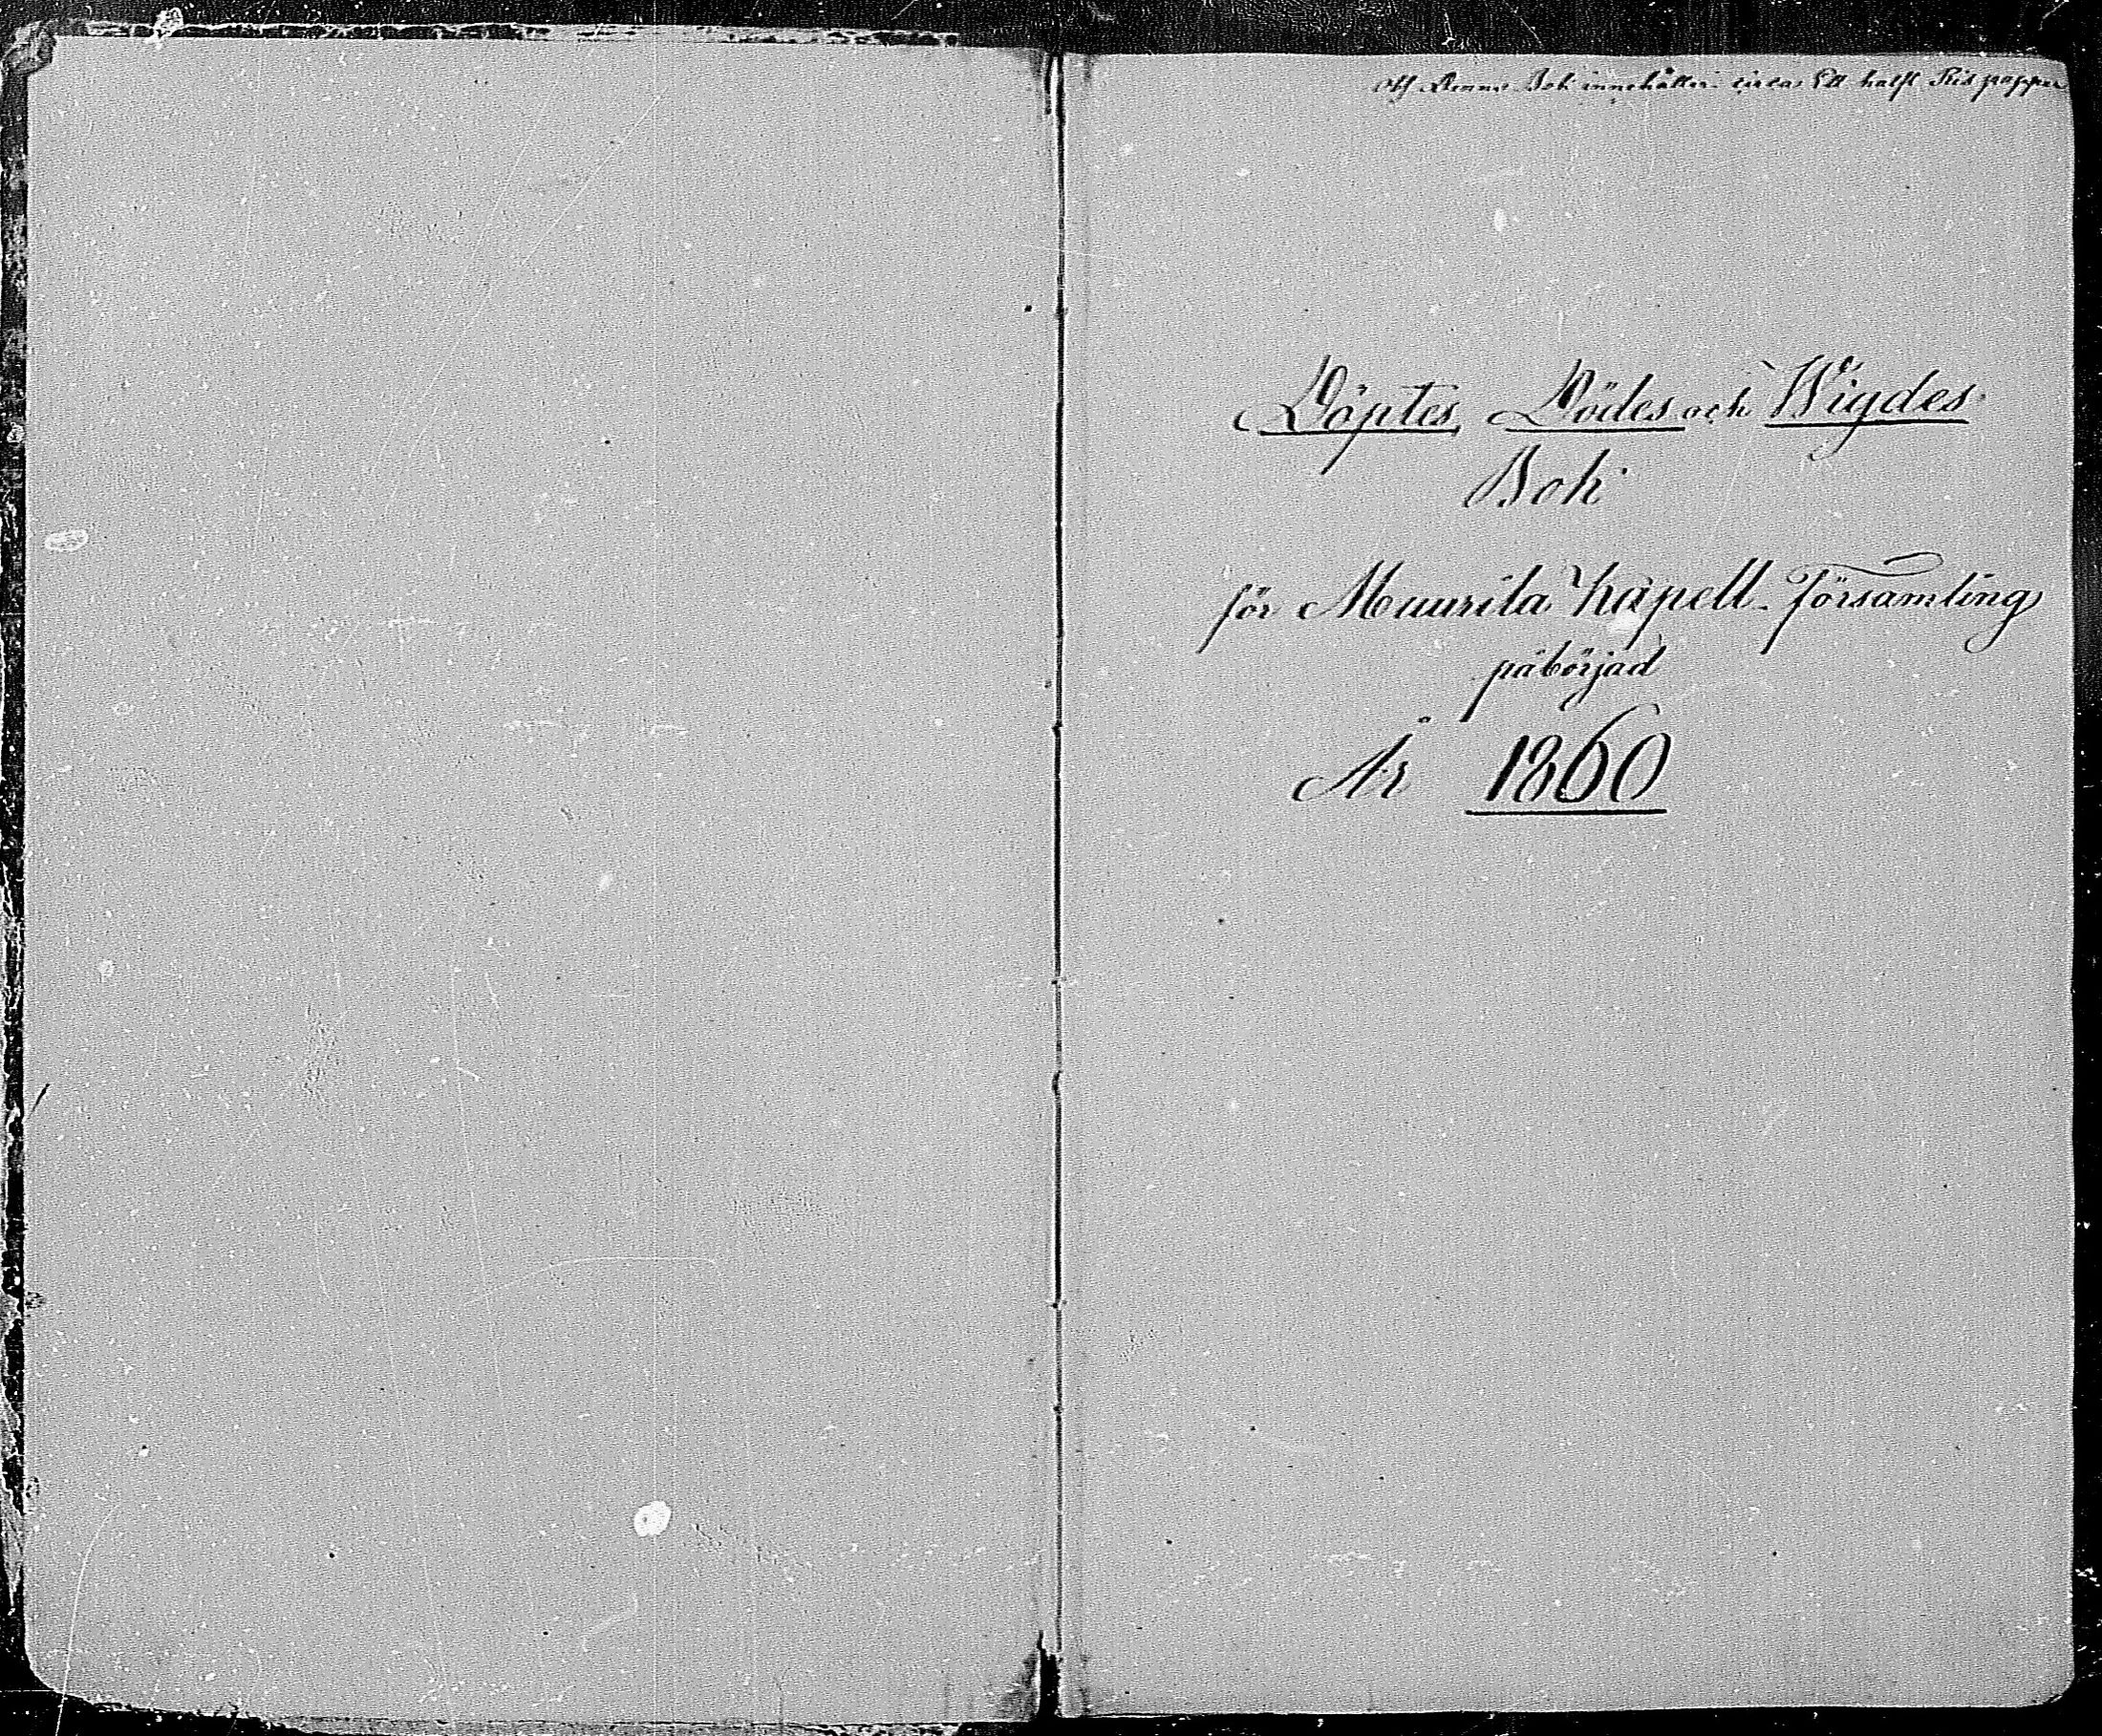 Obs Denna Bok innehåller circa Ett halft Ris papper
Döptes, Dödes och Wigdes
Bok
för Muurila Kapell-Församling
påbörjad
År 1860